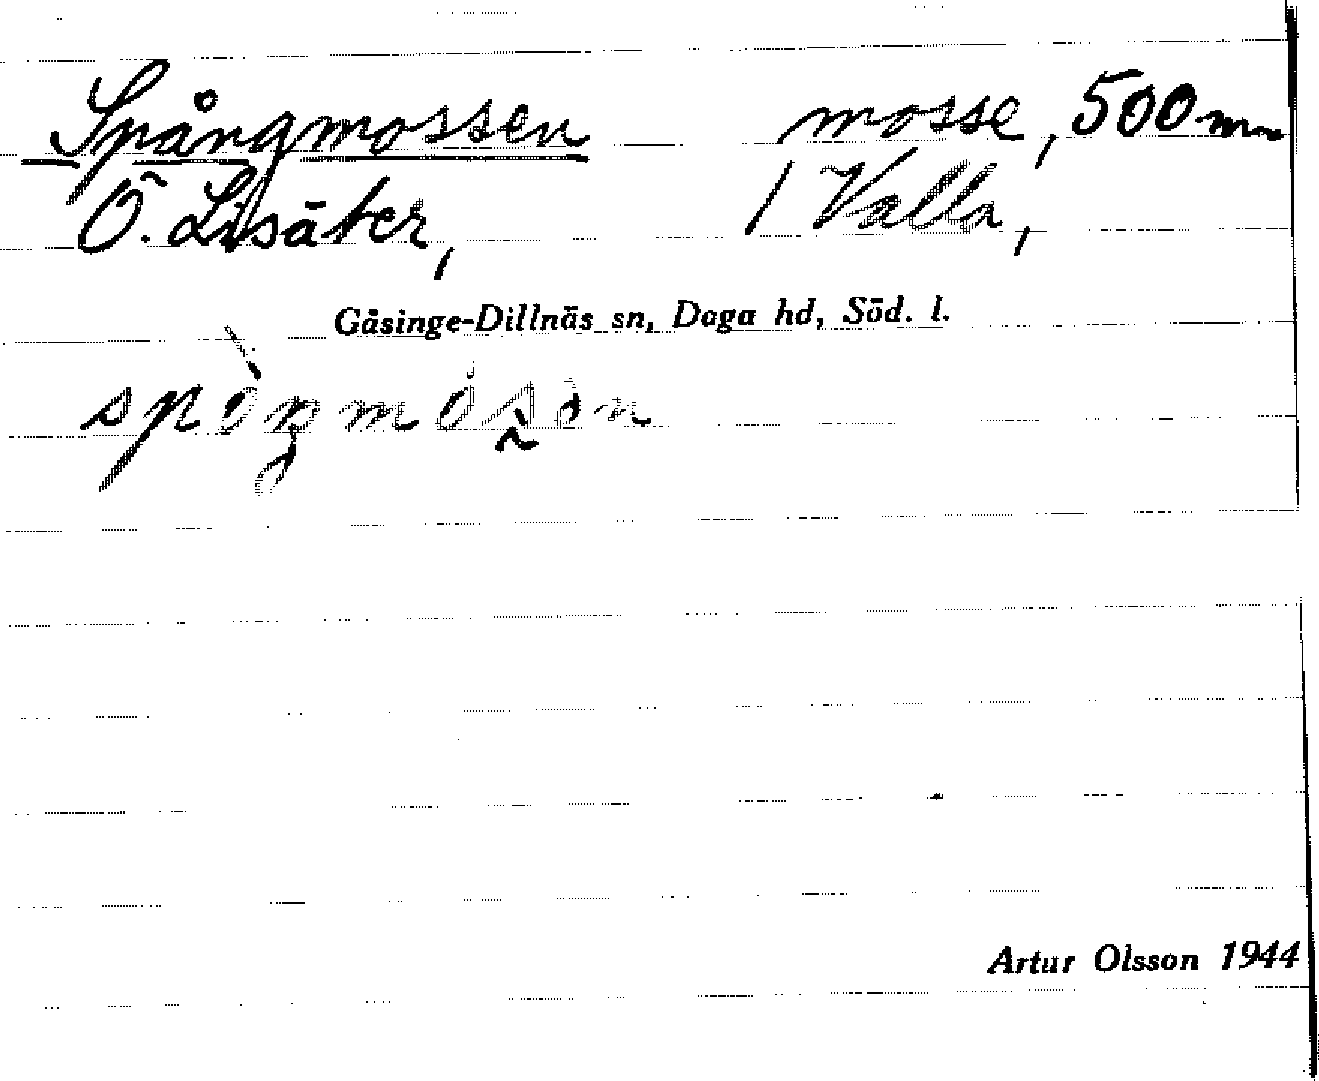 Spångmossen mosse, 500 m
Ö. Lisäter, / Valla,
Gåsinge-Dillnäs sn, Daga hd, Söd. l.
Artur Olsson 1944